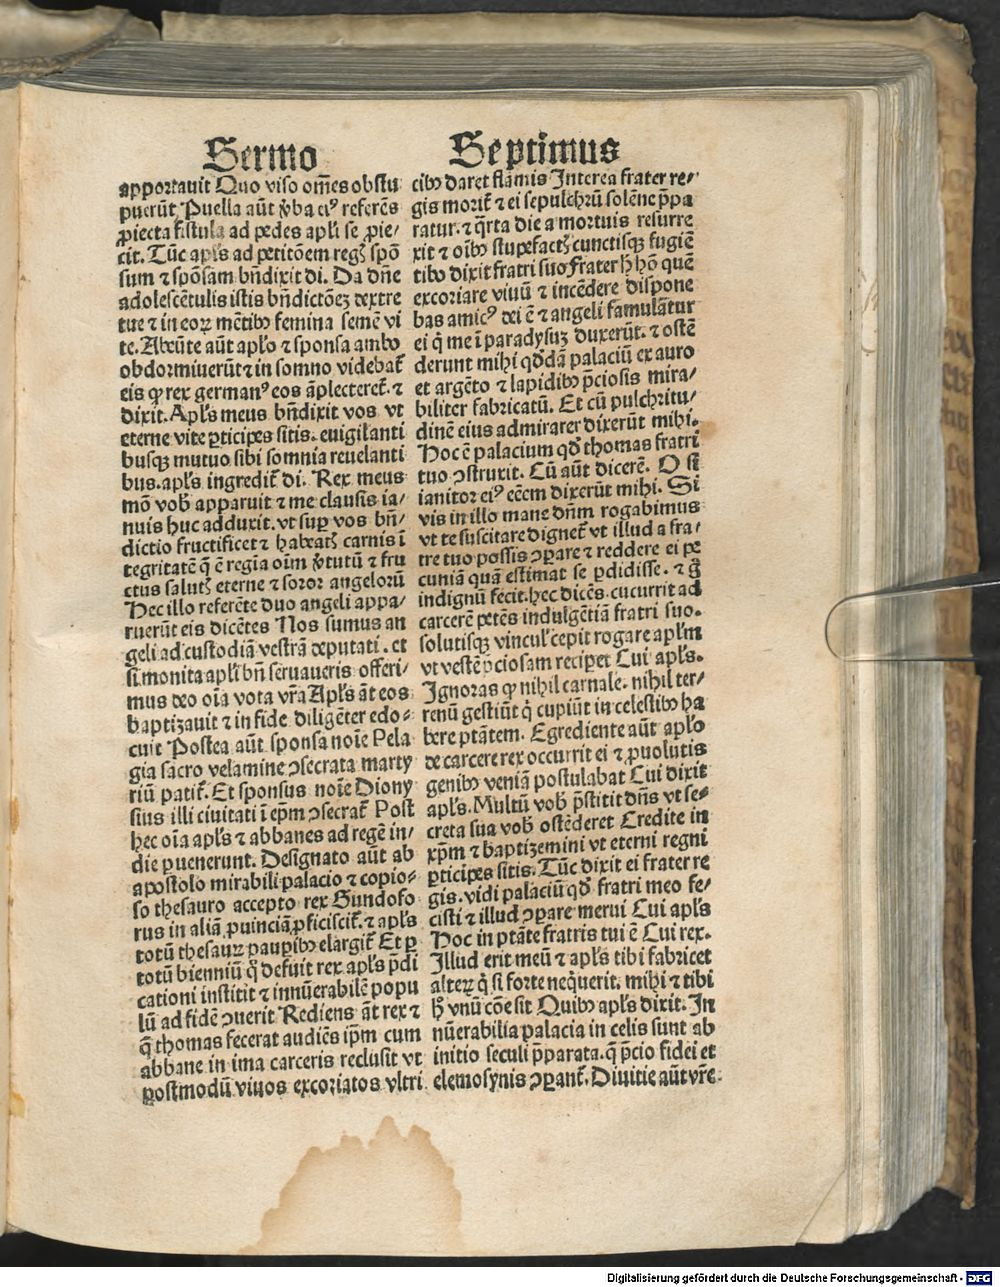 Sermo Septimus
apportauit Quo viso om̄es obstu
puerūt Puella aūt v̄ba eiꝰ referēs
ꝓiecta fistula ad pedes apl̓i se ꝓie/
cit. Tūc apl̓s ad petitōem regꝭ spō
sum ⁊ spōsam bn̄dixit di. Da dn̄e
adolescētulis istis bn̄dictōeꝫ dextre
tue ⁊ in eoꝝ mētibꝰ femina semē vi
te. Abeūte aūt apl̓o ⁊ sponsa ambo
obdormiuerūt ⁊ in somno videbat̄
eis ꝙ rex germanꝰ eos āplecteret̄. ⁊
dixit. Apl̓s meus bn̄dixit vos vt
eterne vite ꝑticipes sitis. euigilanti
busqꝫ mutuo sibi somnia reuelanti
bus. apl̓s ingredit̄ di. Rex meus
mō vob̄ apparuit ⁊ me clausis ia/
nuis huc adduxit. vt suꝑ vos bn̄/
dictio fructificet ⁊ habeatꝭ carnis ī
tegritatē q̄ ē regīa oīm v̄tutū ⁊ fru
ctus salutꝭ eterne ⁊ soror angelorū
Hec illo referēte duo angeli appa/
ruerūt eis dicētes Nos sumus an
geli ad custodiā vestrā deputati. et
si monita apl̓i bn̄ seruaueris offeri/
mus deo oīa vota vr̄a Apl̓s āt eos
baptizauit ⁊ in fide diligēter edo-
cuit Postea aūt sponsa noīe Pela
gia sacro velamine ↄsecrata marty
riū patit̄. Et sponsus noīe Diony
sius illi ciuitati ī ep̄m ↄsecrat̄ Post
hec oīa apl̓s ⁊ abbanes ad regē in/
die ꝑuenerunt. Designato aūt ab
apostolo mirabili palacio ⁊ copio-
so thesauro accepto rex Gundofo
rus in aliā ꝓuinciā ꝓficiscit̄. ⁊ apl̓s
totū thesauꝝ pauꝑibꝰ elargit̄ Et ꝑ
totū bienniū q̊ defuit rex apl̓s p̄di
cationi institit ⁊ innūerabilē popu
lū ad fidē ↄuerit Rediens āt rex ⁊
q̄ thomas fecerat audiēs ip̄m cum
abbane in ima carceris reclusit vt
postmodū viuos excoriatos vltri
cibꝰ daret flāmis Interea frater re-/
gis morit̄ ⁊ ei sepulchrū solēne p̄pa
ratur. ⁊ q̄rta die a mortuis resurre
xit ⁊ oībꝰ stupefactꝭ cunctisqꝫ fugiē
tibꝰ dixit fratri suo Frater h̄ hō quē
excoriare viuū ⁊ incēdere dispone
bas amicꝰ dei ē ⁊ angeli famulātur
ei q̇ me ī paradysuꝫ duxerūt. ⁊ ostē
derunt mihi qd̄dā palaciū ex auro
et argēto ⁊ lapidibꝰ p̄ciosis mira/
biliter fabricatū. Et cū pulchritu/
dinē eius admirarer dixerūt mihi.
Hoc ē palacium qd̄ thomas fratri
tuo ↄstruxit. Cū aūt dicerē. O si
ianitor eiꝰ eēm dixerūt mihi. Si
vis in illo mane dn̄m rogabimus
vt te suscitare dignet̄ vt illud a fra/
tre tuo possis ↄꝑare ⁊ reddere ei pe
cuniā quā estimat se ꝑdidisse. ⁊ ḡ
indignū fecit. hec dicēs cucurrit ad
carcerē petēs indulgētiā fratri suo.
solutisqꝫ vincul̓ cepit rogare apl̓m
vt vestē p̄ciosam reciꝑet Cui apl̓s.
Ignoras ꝙ nihil carnale. nihil ter-/
renū gestiūt q̇ cupiūt in celestibꝰ ha
bere ptātem. Egrediente aūt apl̓o
de carcere rex occurrit ei ⁊ ꝓuolutis
genibꝰ veniā postulabat Cui dixit
apl̓s. Multū vob̄ p̄stitit dn̄s vt se-
creta sua vob̄ ostēderet Credite in
xp̄m ⁊ baptizemini vt eterni regni
ꝑticipes sitis. Tūc dixit ei frater re
gis. vidi palaciū qd̄ fratri meo fe/
cisti ⁊ illud ↄꝑare merui Cui apl̓s
Hoc in ptāte fratris tui ē Cui rex.
Illud erit meū ⁊ apl̓s tibi fabricet
alteꝝ q̇ si forte neq̇uerit. mihi ⁊ tibi
h̄ vnū cōe sit Quibꝰ apl̓s dixit. In
nūerabilia palacia in celis sunt ab
initio seculi p̄parata. q̄ p̄cio fidei et
elemosynis ↄꝑant̄. Diuitie aūt vr̄e
Digitalisierung gefördert durch die Deutsche Forschungsgemeinschaft - DFG